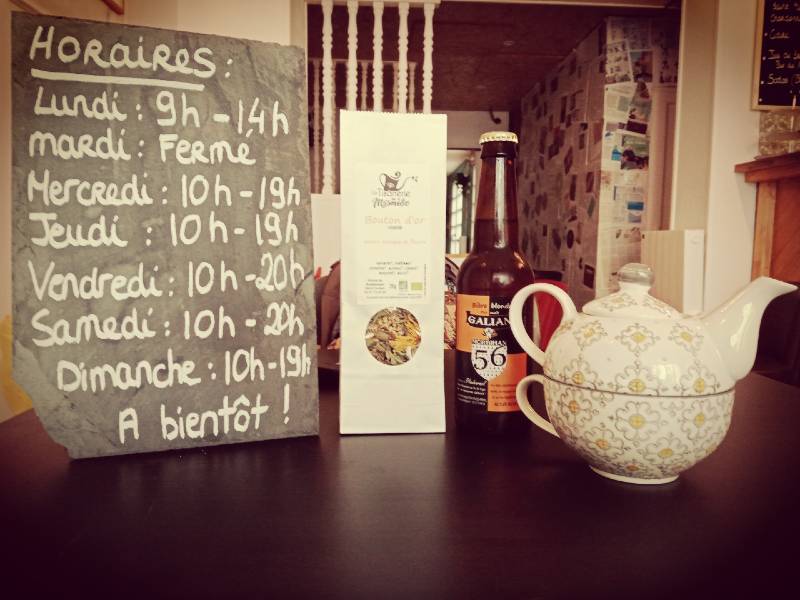 HORAIRES :
Lundi : 9h - 14h
mardi : Fermé
Mercredi : 10h - 19h
Jeudi : 10h - 19h
Vendredi : 10h - 20h
Samedi : 10h - 20h
Dimanche : 10h - 19h
A bientôt !
Bouton d'or
Bière blonde
GALIAN
MORBIHAN
56